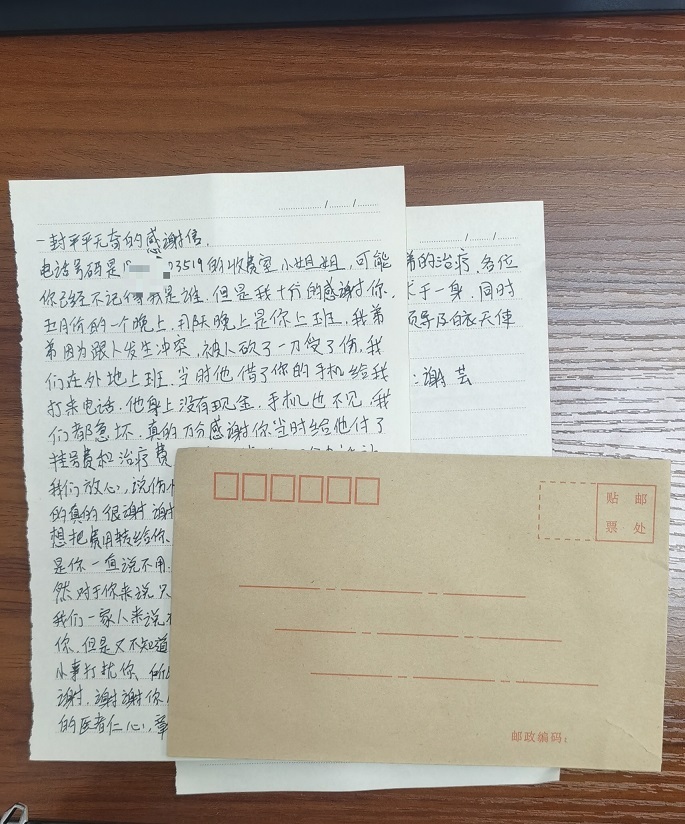 一封平平无奇的感谢信.
电话号码是1 3519的收费室小姐姐,可能
你已经不记得我是谁.但是我十分的感谢你.
五月份的一个晚上,那天晚上是你上班,我弟
弟因为跟人发生冲突,被人砍了一刀受了伤,我
们在外地上班,当时他借了你的手机给我
打来电话.他身上没有现金,手机也不见,我
们都急坏.真的万分感谢你当时给他付了
挂号费和治疗费
我们放心,说伤
的真的很谢谢
想把费用转给你.
是你一直说不用.
然对于你来说只
我们一家人来说
你.但是又不知道
小事打扰你.所以
谢.谢谢你
的医者仁心,
弟的治疗.各位
于一身.同时
领导及白衣天使
:谢芸
贴 邮
票 处
邮政编码: